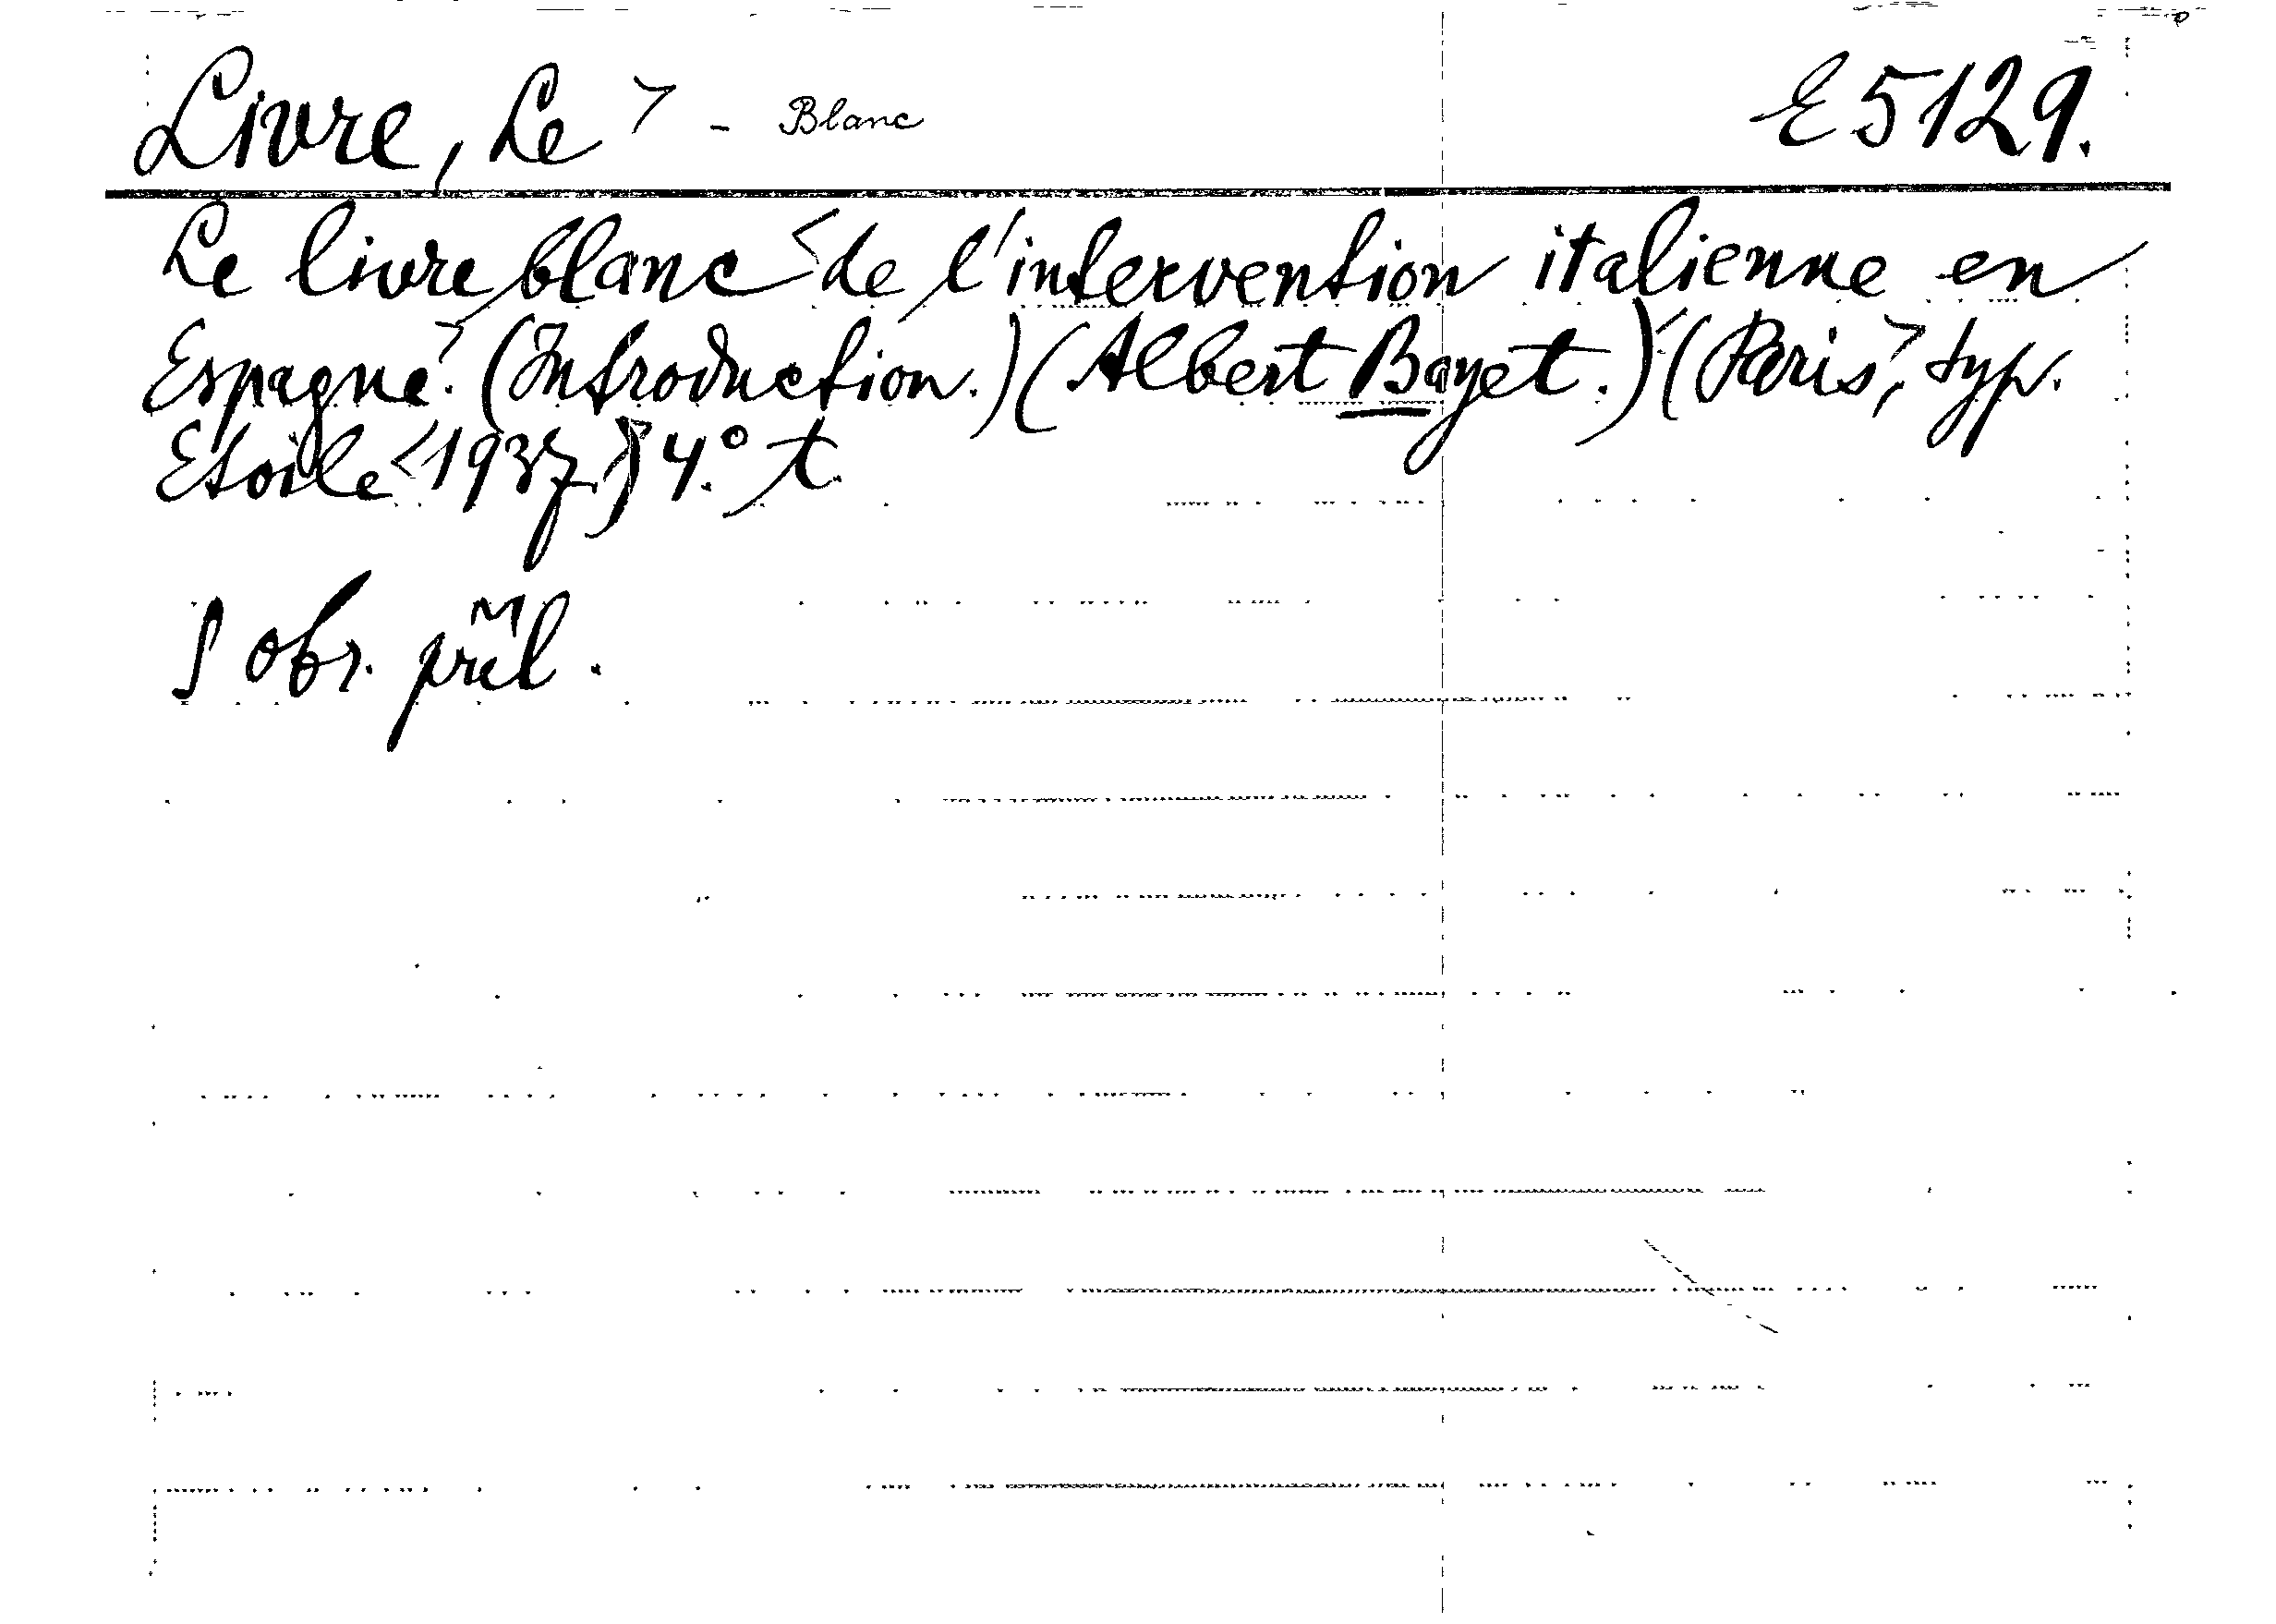 Livre, Le > - Blanc E 5129.
Le livre blanc < de l'intervention italienne en
Espagne >. (Introduction.) (Albert Bayet.) < (Paris >, typ.
Etoile < 1937.) > 4.° t.
S obr. příl.